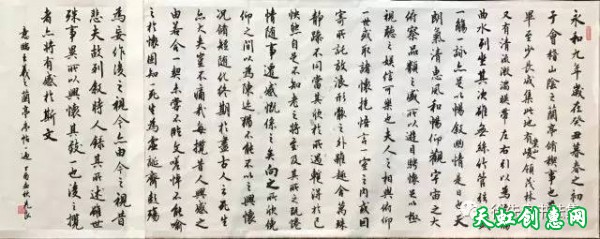 永和九年歲在癸丑暮春之初
于會稽山陰之蘭亭脩稧事也
畢至少長咸集此地有峻領茂林
又有清流激湍暎帶左右引以為
曲水列坐其次雖無絲竹管弦
一觴一詠亦足以暢敘幽情是日也天
朗氣清惠風和暢仰觀宇宙之大
俯察品類之盛所以遊目騁懷足以極
視聽之娛信可樂也夫人之相與俯仰
一世或取諸懷抱悟言一室之內或因
寄所託放浪形骸之外雖趣舍萬殊
靜躁不同當其欣於所遇暫得於己
怏然自足不知老之將至及其所之既惓
情隨事遷感慨係之矣向之所欣俛
仰之間以為陳迹猶不能不以之興懷
況脩短隨化終期於盡古人云死生
亦大矣豈不痛哉每攬昔人興感之
由若合一契未嘗不臨文嗟悼不能喻
之於懷固知一死生為虛誕齊彭殤
為妄作後之視今亦由今之視昔
悲夫故列敘時人錄其所述雖世
殊事異所以興懷其致一也後之攬
者亦將有感於斯文
意臨王羲之蘭亭序
天虹创意网